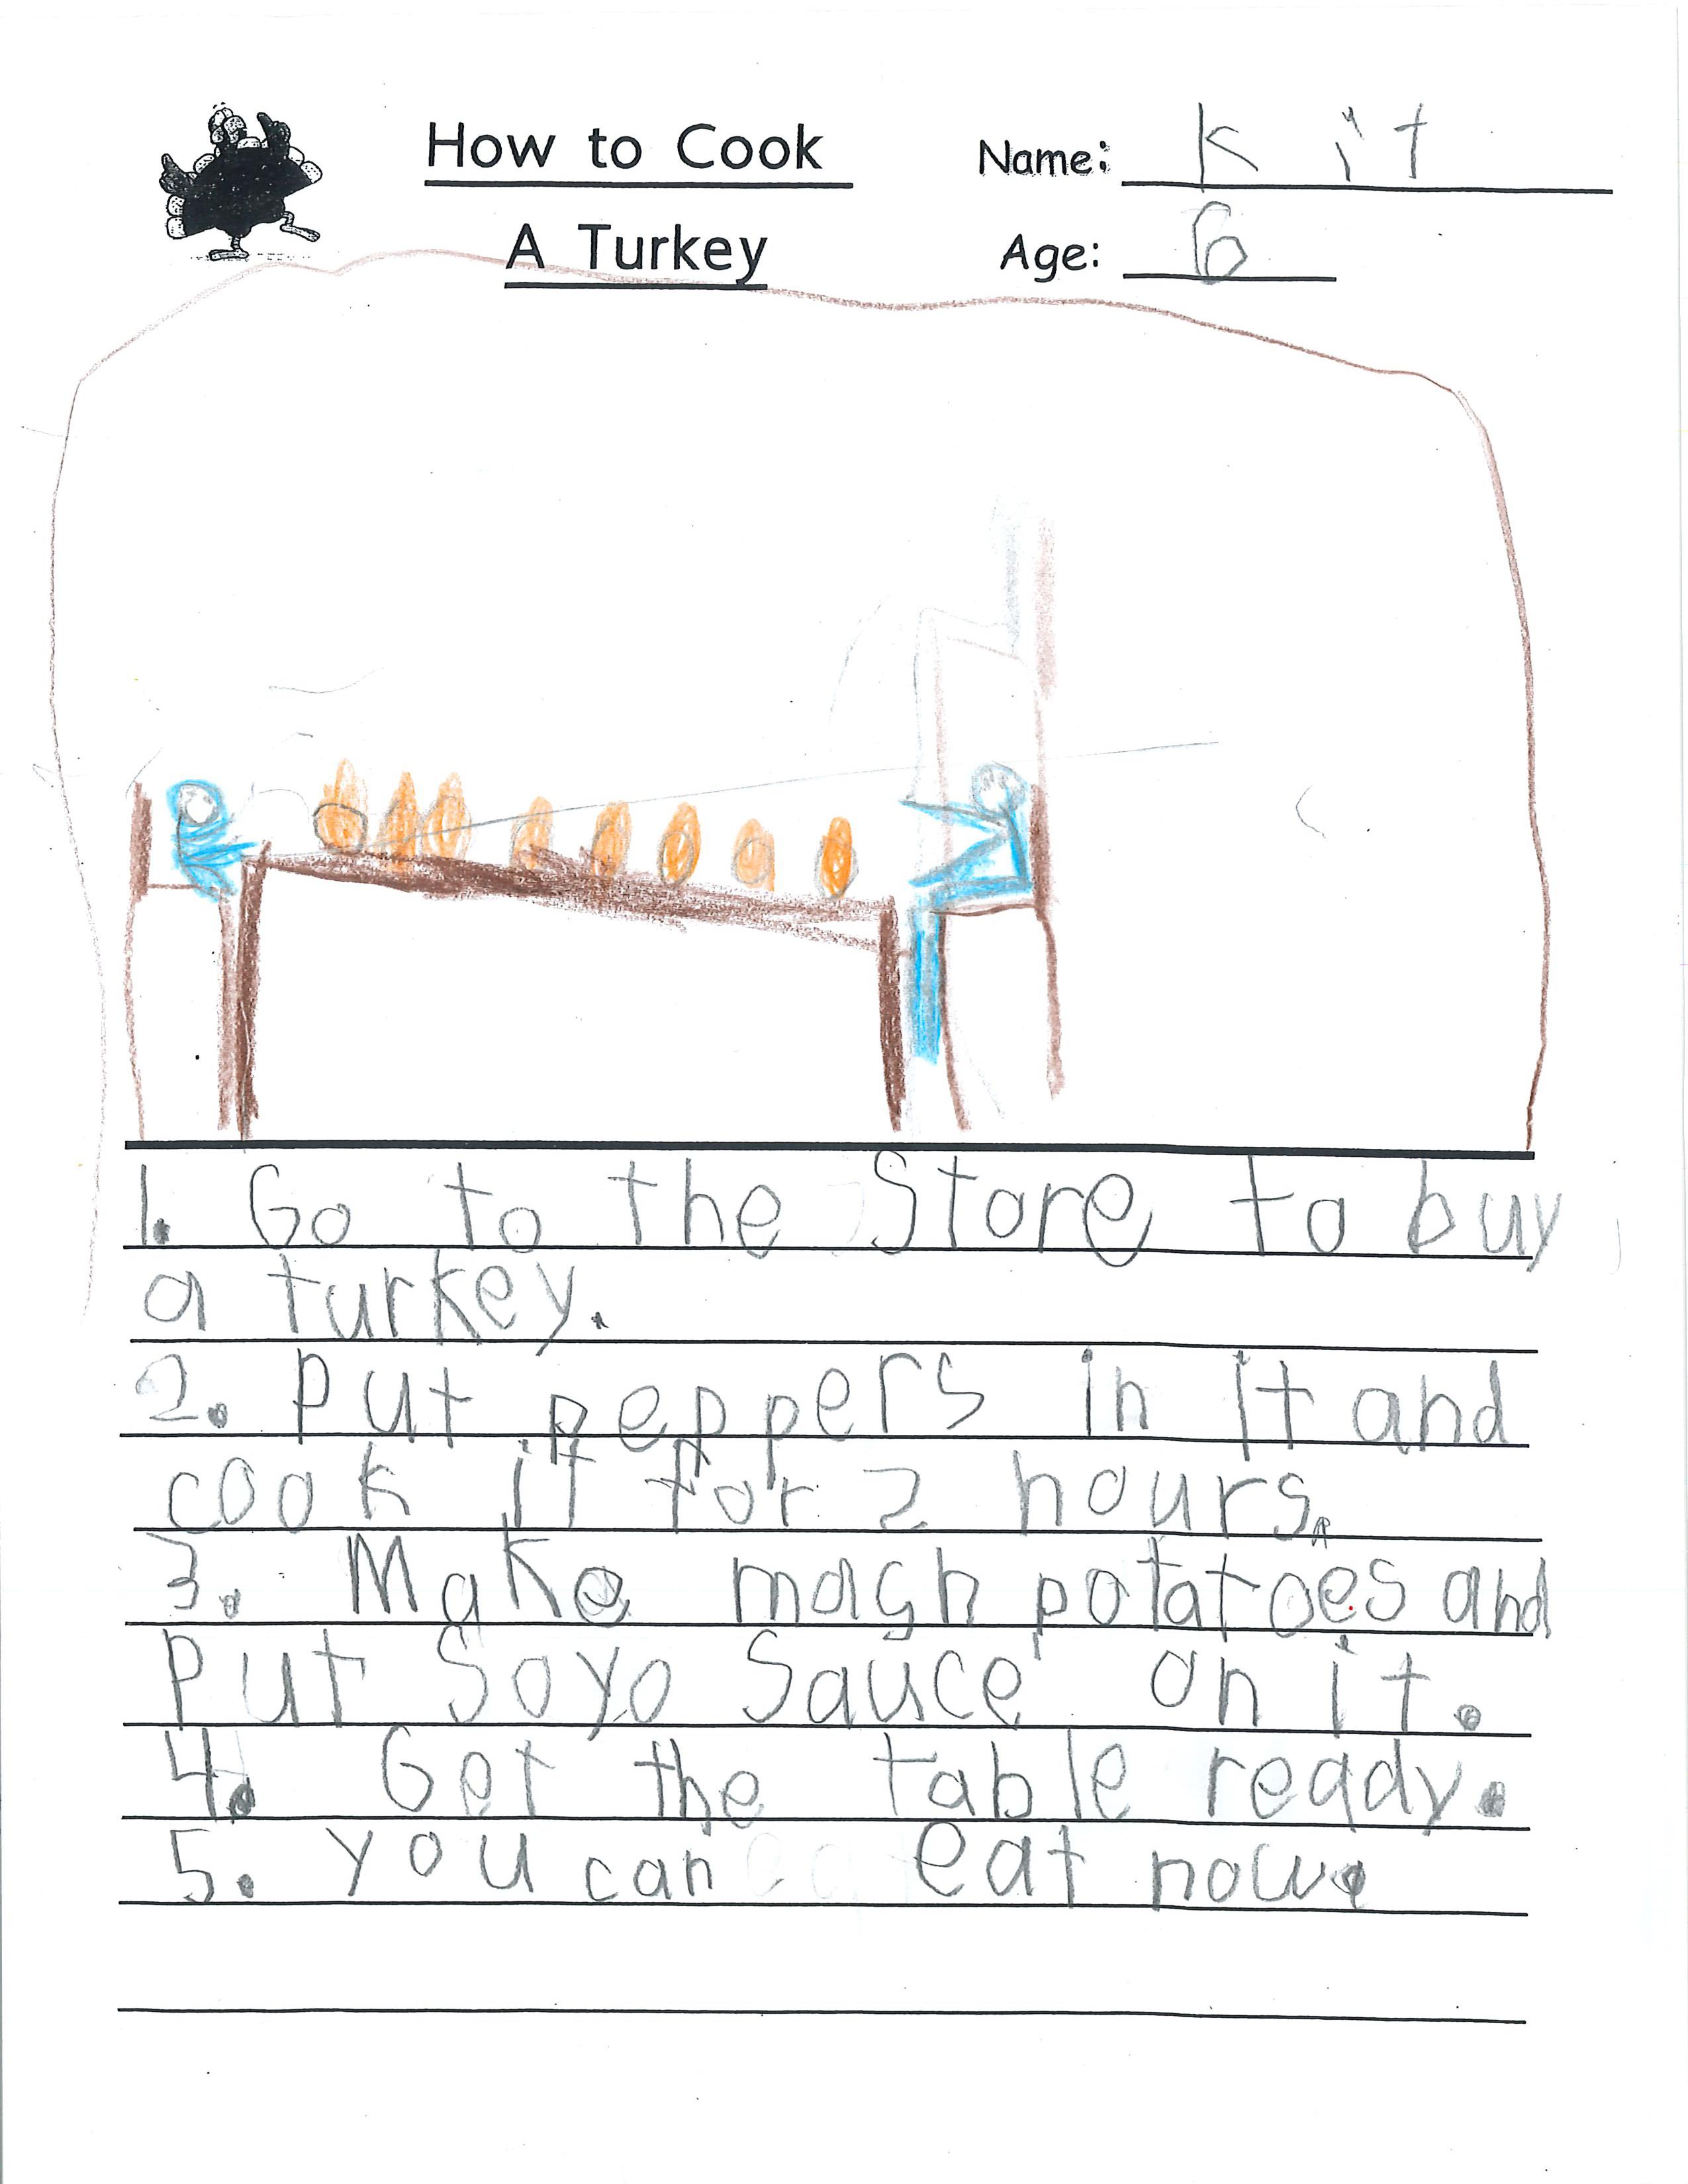 How to Cook
A Turkey
Name: Kit
Age: 6
1. Go to the Store to buy
a turkey.
2. Put peppers in it and
cook it for 2 hours.
3. Make magh potatoes and
Put Soyo Sauce on it.
4. Get the table ready.
5. you can eat now.